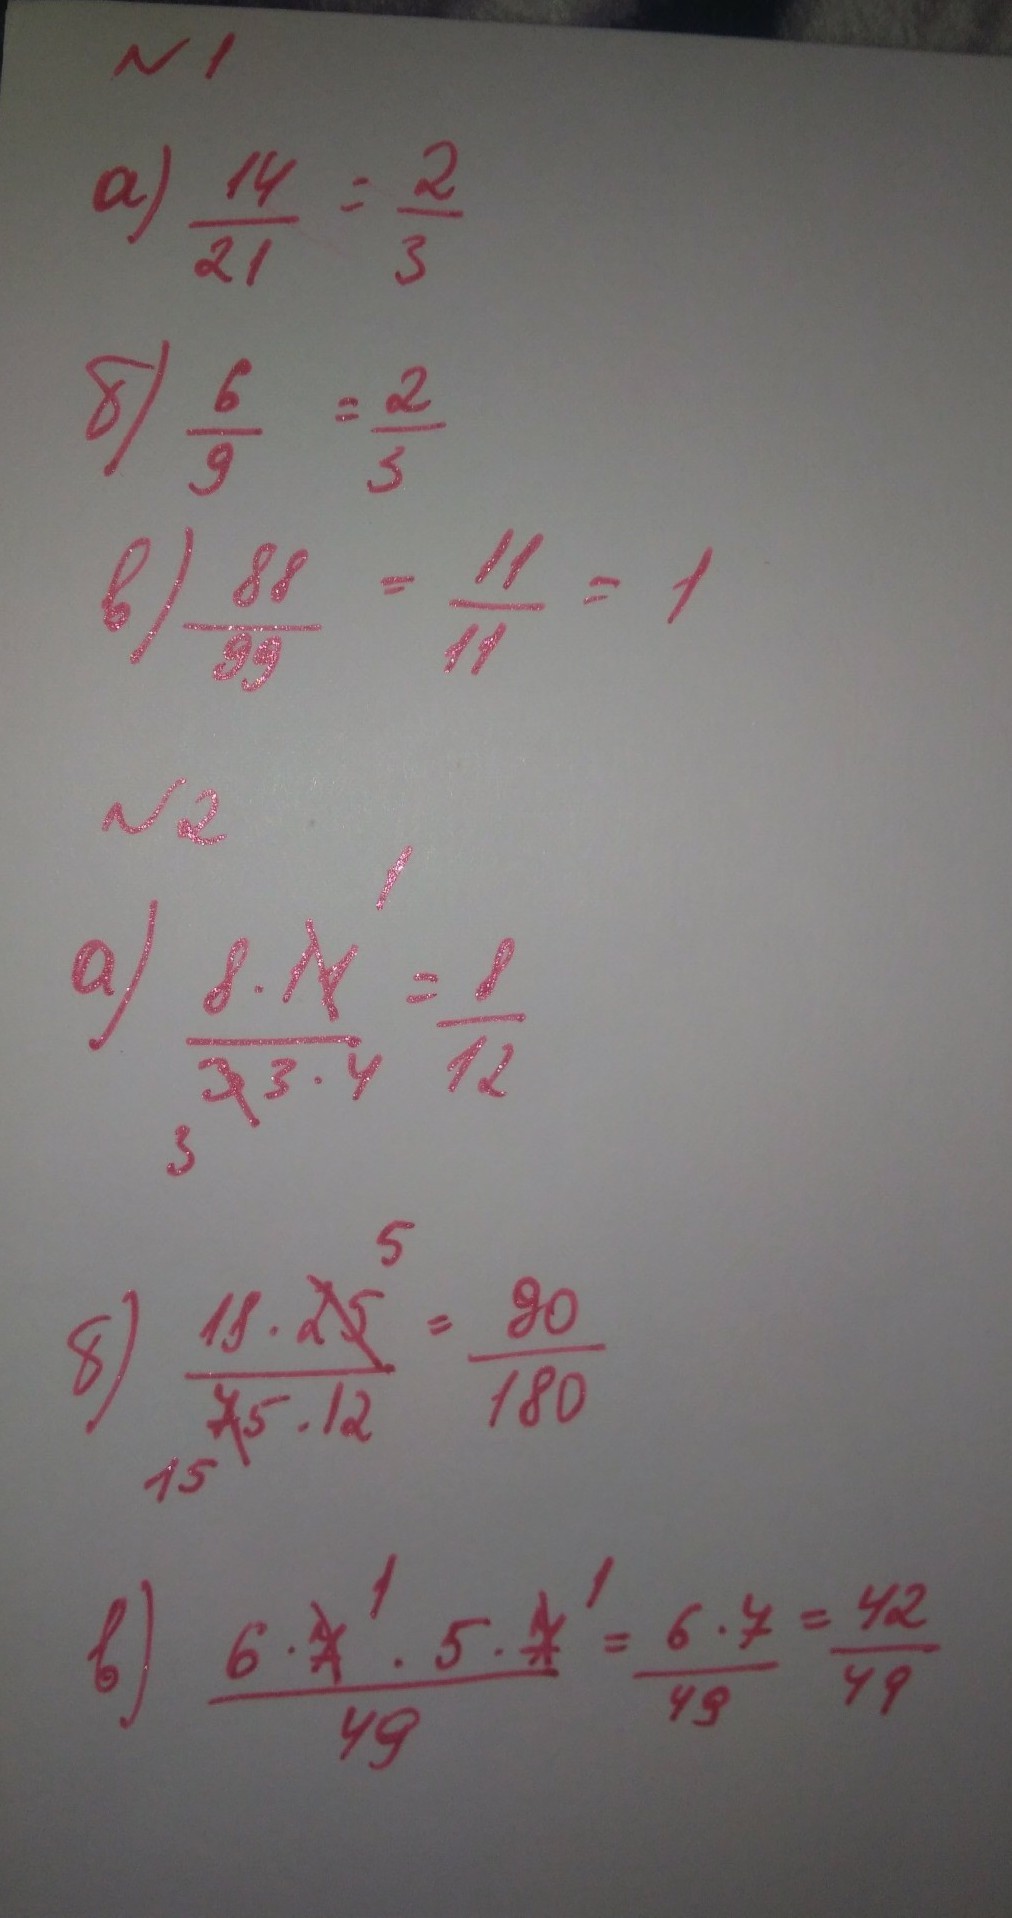 N1
а) 14/21 = 2/3
б) 6/9 = 2/3
в) 88/99 = 11/11 = 1
N2
1
а) 8·14/33·4 = 8/12
3
5
б) 18·25/75·12 = 90/180
15
1 1
в) 6·7·5·7/49 = 6·7/49 = 42/49